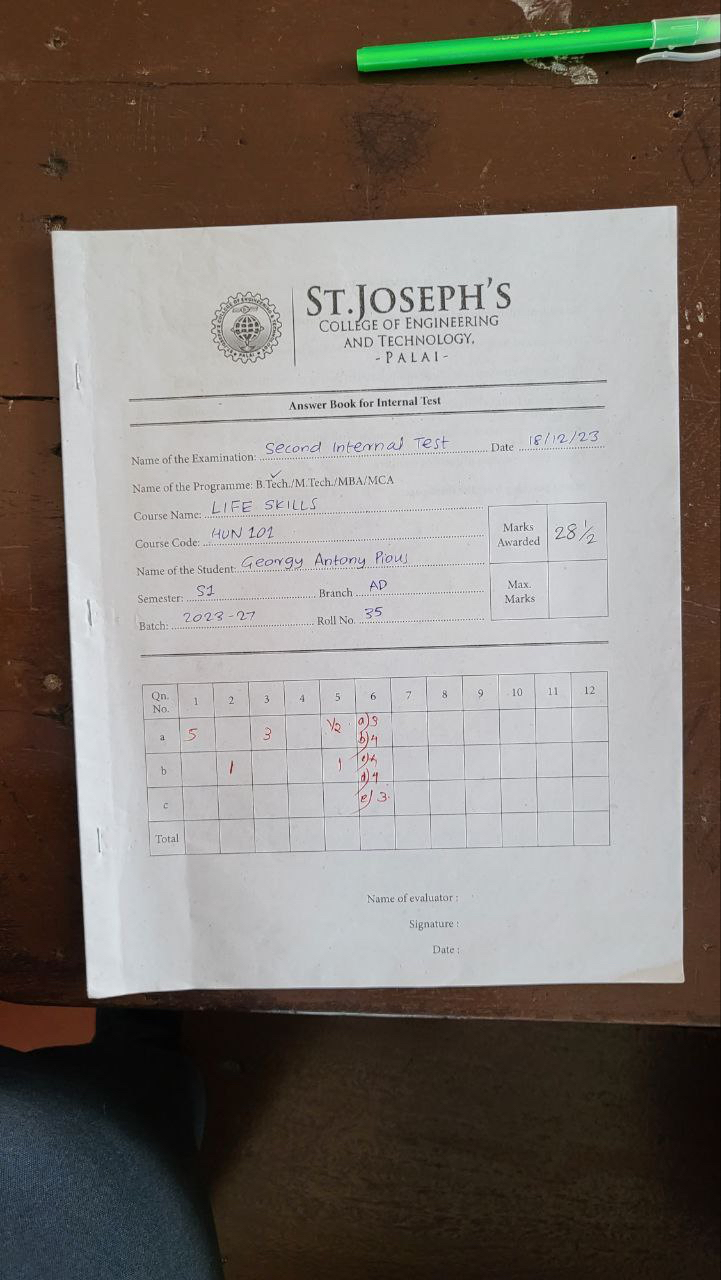 ST.JOSEPH'S
COLLEGE OF ENGINEERING
AND TECHNOLOGY,
- PALAI -
Answer Book for Internal Test
Name of the Examination: Second Internal Test Date 18/12/23
Name of the Programme: B.Tech./M.Tech./MBA/MCA
Course Name: LIFE SKILLS
Course Code: HUN 101
Marks Awarded 28 1/2
Name of the Student: Georgy Antony Pious
Semester: S1 Branch AD
Max. Marks
Batch: 2023-27 Roll No. 35
Qn. No. 1 2 3 4 5 6 7 8 9 10 11 12
a 5 3 1/2 a) 3
b) 4
b 1 1
d) 4
c e) 3
Total
Name of evaluator :
Signature :
Date :